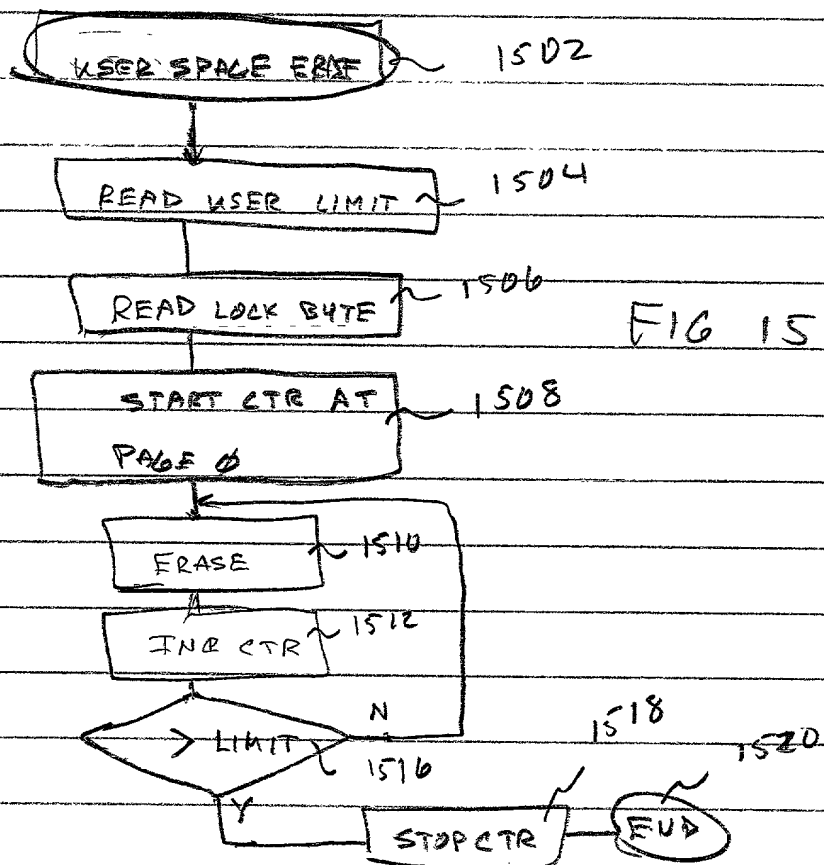 USER SPACE ERASE 1502
READ USER LIMIT 1504
READ LOCK BYTE 1506
FIG 15
START CTR AT 1508
PAGE Ø
ERASE 1510
INC CTR 1512
N
> LIMIT 1516
Y
1518
1520
STOP CTR
END